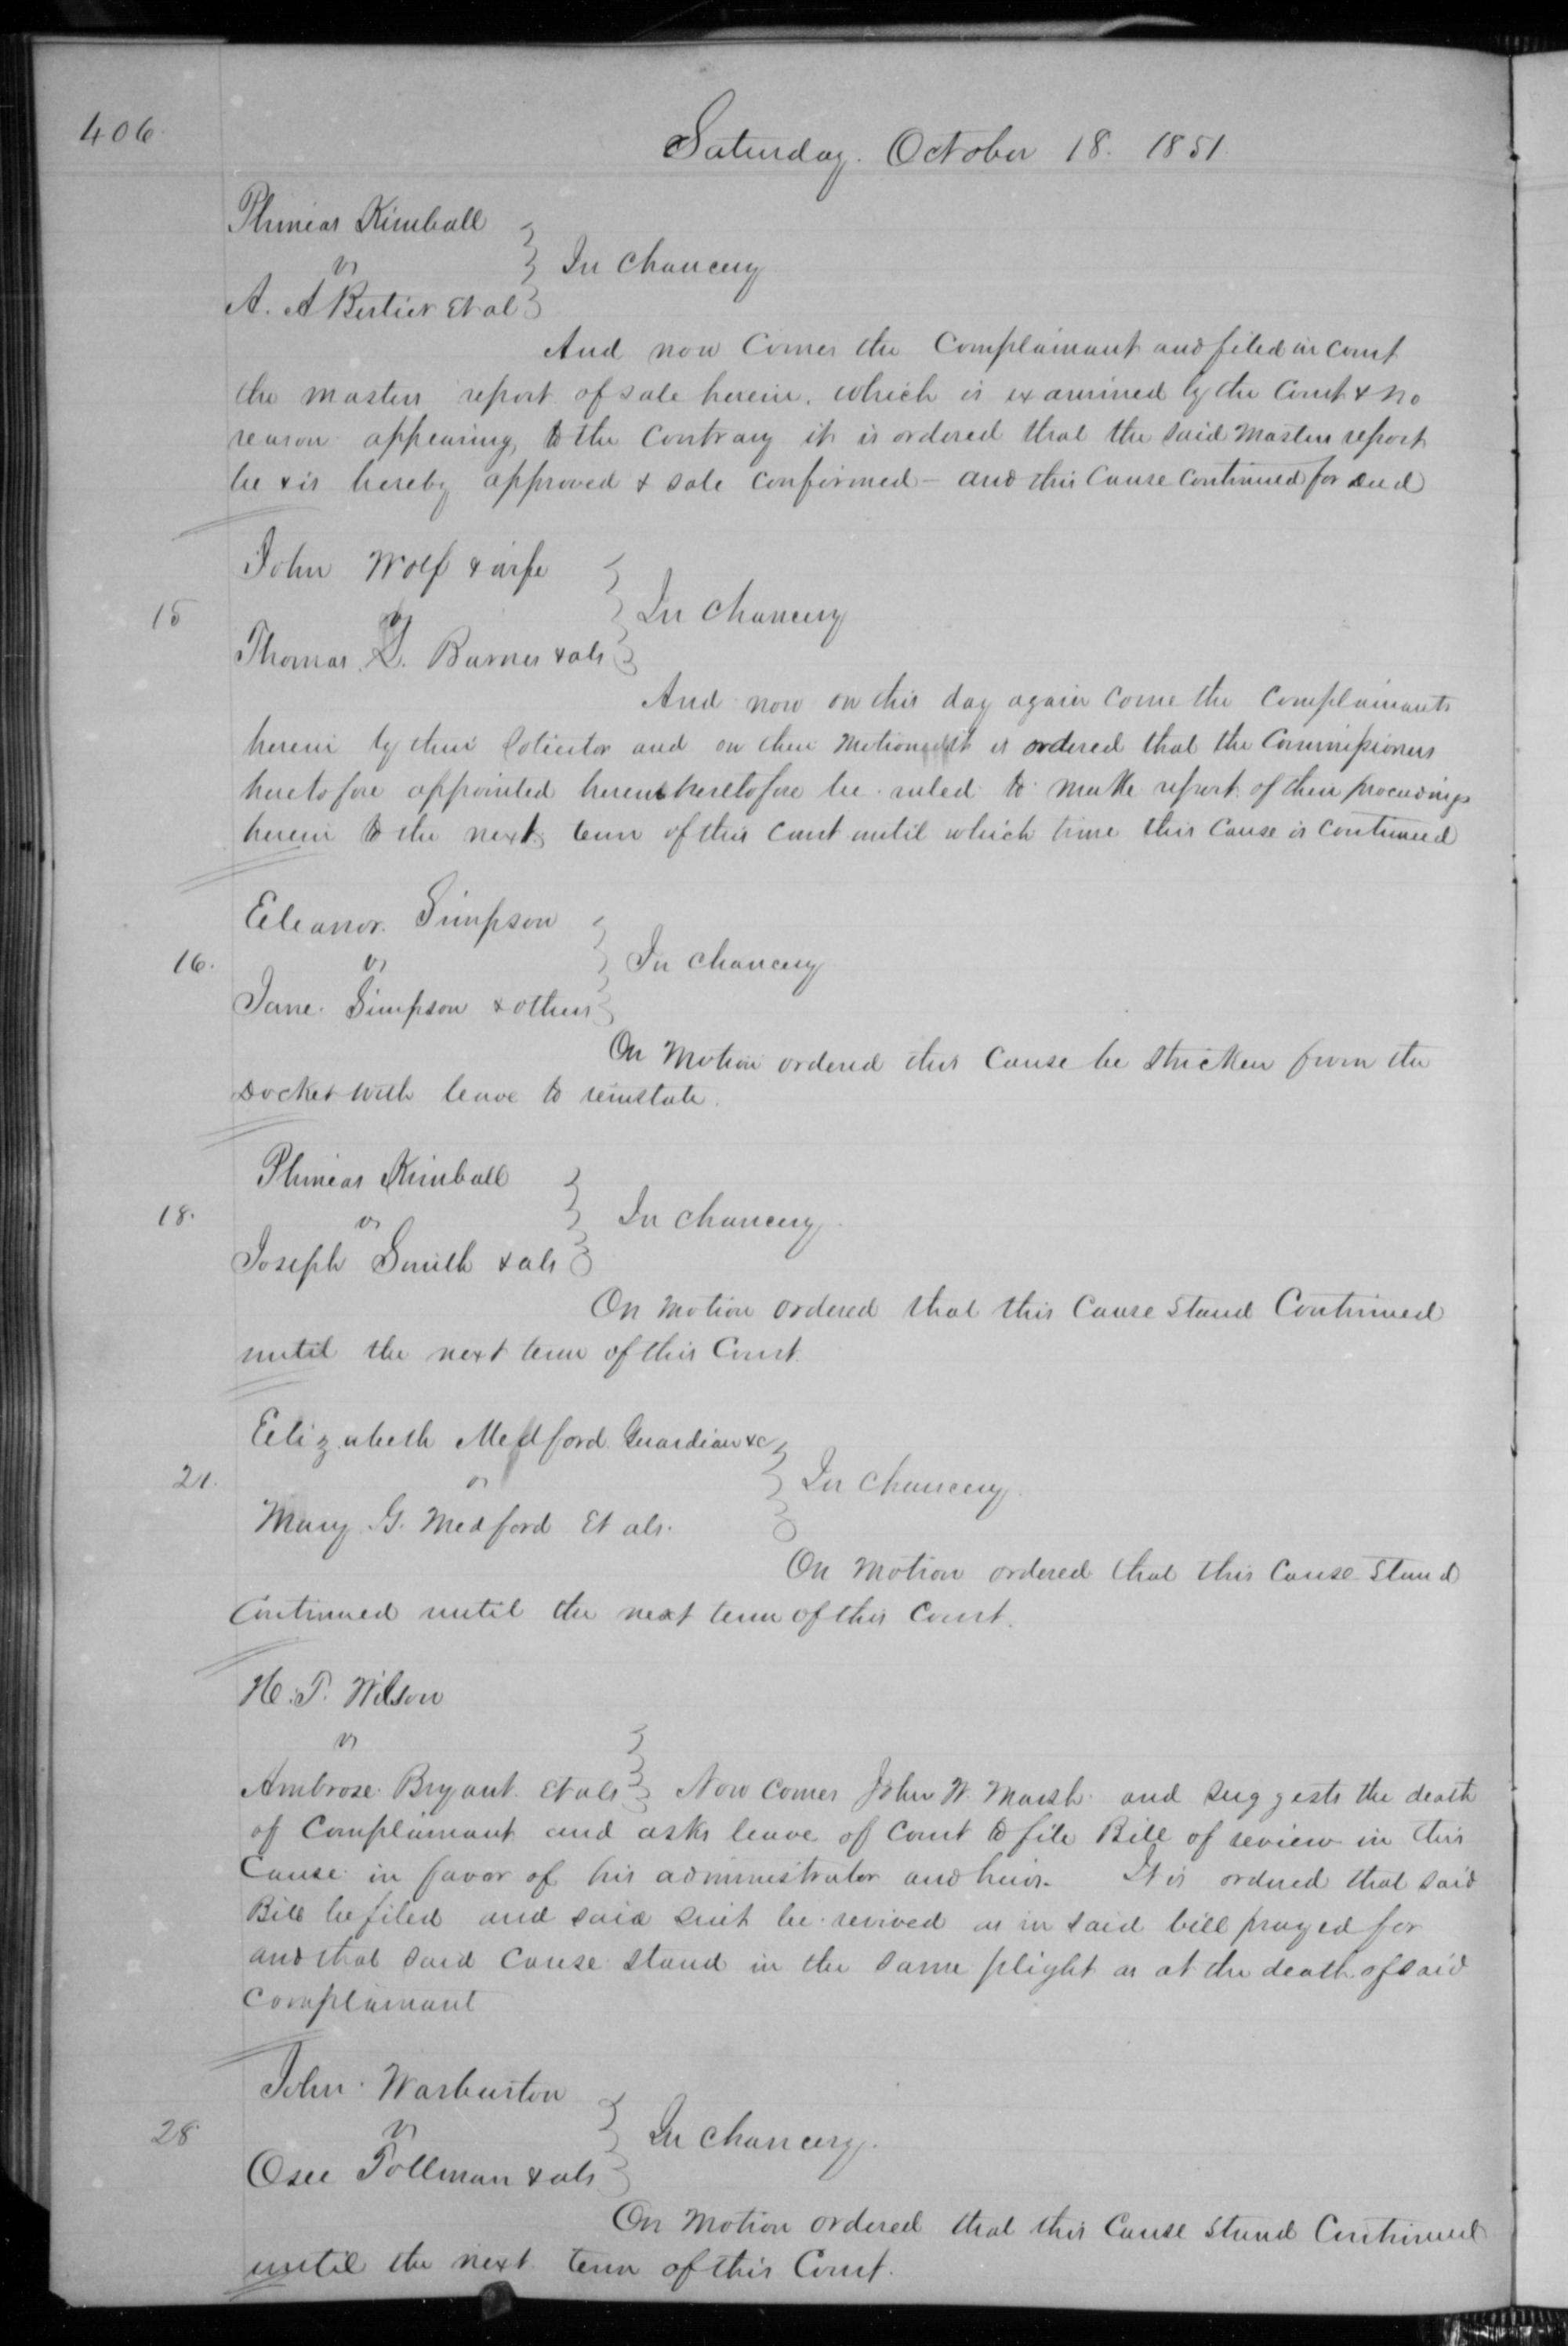 406
Saturday. October 18. 1851.
Phineas Kimball
vs
In Chancery
A. A Bertier et al
And now Comes the Complainant and filed in Court
the masters report of sale herein. which is examined by the Court & no
reason appearing to the Contrary it is ordered that the said Masters report
be & is hereby approved & sale Confirmed – and this Cause Continued for deed
John Wolf & wife
15
vs
In Chancery
Thomas L. Barnes & als
And now on this day again Come the Complainants
herein by their Solicitor and on their Motion it is ordered that the Commissioners
heretofore appointed herein heretofore be ruled to make report of their proceedings
herein to the next term of this Court until which time this Cause is Continued
Eleanor Simpson
16.
vs
In Chancery
Jane Simpson & others
On Motion ordered this Cause be Stricken from the
Docket with leave to reinstate.
Phineas Kimball
18.
vs
In Chancery
Joseph Smith & als
On Motion ordered that this Cause Stand Continued
until the next term of this Court.
Elizabeth Medford Guardian &c
21.
vs
In Chancery
Mary G. Medford Et als.
On Motion ordered that this Cause Stand
Continued until the next term of this Court.
H. T. Wilson
vs
Ambrose Bryant et als Now Comes John W. Marsh and Suggests the death
of Complainant and asks leave of Court to file Bill of review in this
Cause in favor of his administrator and heirs. It is ordered that said
Bill be filed and said Suit be revived as in said bill prayed for
and that said Cause stand in the same plight as at the death of said
Complainant
John Warburton
28
vs
In Chancery.
Osee Tollman & als
On Motion ordered that this Cause Stand Continued
until the next term of this Court.